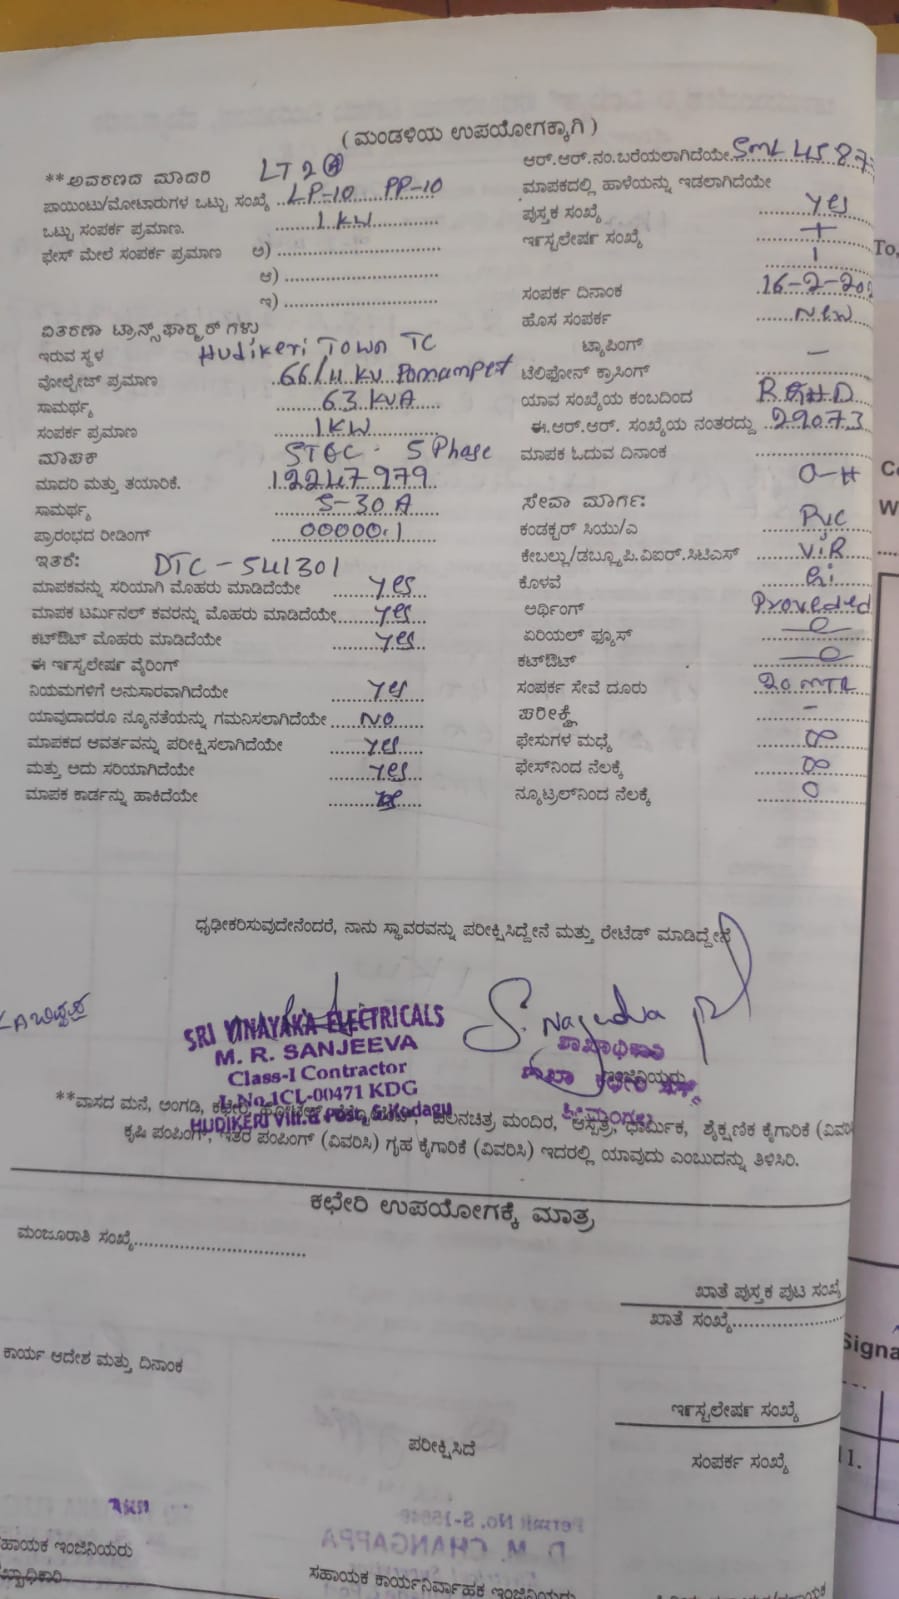 ( ಮಂಡಳಿಯ ಉಪಯೋಗಕ್ಕಾಗಿ )
**ಅವರಣದ ಮಾದರಿ LT 2
ಪಾಯಿಂಟು/ಮೋಟಾರುಗಳ ಒಟ್ಟು ಸಂಖ್ಯೆ LP-10 PP-10
ಒಟ್ಟು ಸಂಪರ್ಕ ಪ್ರಮಾಣ. 1 KW
ಫೇಸ್ ಮೇಲೆ ಸಂಪರ್ಕ ಪ್ರಮಾಣ ಅ)
ಆ)
ಇ)
ವಿತರಣಾ ಟ್ರಾನ್ಸ್‌ಫಾರ್ಮರ್‌ಗಳು
ಇರುವ ಸ್ಥಳ Hudikeri Town TC
ವೋಲ್ಟೇಜ್ ಪ್ರಮಾಣ 66/11 KV Ponnampet
ಸಾಮರ್ಥ್ಯ 63 KVA
ಸಂಪರ್ಕ ಪ್ರಮಾಣ 1KW
ಮಾಪಕ Phase
ಮಾದರಿ ಮತ್ತು ತಯಾರಿಕೆ. 12247979
ಸಾಮರ್ಥ್ಯ 5-30 A
ಪ್ರಾರಂಭದ ರೀಡಿಂಗ್ 00000.1
ಇತರೆ: DTC-541301
ಮಾಪಕವನ್ನು ಸರಿಯಾಗಿ ಮೊಹರು ಮಾಡಿದೆಯೇ yes
ಮಾಪಕ ಟರ್ಮಿನಲ್ ಕವರನ್ನು ಮೊಹರು ಮಾಡಿದೆಯೇ yes
ಕಟ್‌ಔಟ್ ಮೊಹರು ಮಾಡಿದೆಯೇ yes
ಈ ಇನ್‌ಸ್ಟಲೇಷನ್ ವೈರಿಂಗ್
ನಿಯಮಗಳಿಗೆ ಅನುಸಾರವಾಗಿದೆಯೇ yes
ಯಾವುದಾದರೂ ನ್ಯೂನತೆಯನ್ನು ಗಮನಿಸಲಾಗಿದೆಯೇ NO
ಮಾಪಕದ ಆವರ್ತವನ್ನು ಪರೀಕ್ಷಿಸಲಾಗಿದೆಯೇ yes
ಮತ್ತು ಅದು ಸರಿಯಾಗಿದೆಯೇ yes
ಮಾಪಕ ಕಾರ್ಡನ್ನು ಹಾಕಿದೆಯೇ
ಆರ್.ಆರ್.ನಂ.ಬರೆಯಲಾಗಿದೆಯೇ
ಮಾಪಕದಲ್ಲಿ ಹಾಳೆಯನ್ನು ಇಡಲಾಗಿದೆಯೇ
ಪುಸ್ತಕ ಸಂಖ್ಯೆ yes
ಇನ್‌ಸ್ಟಲೇಷನ್ ಸಂಖ್ಯೆ
ಸಂಪರ್ಕ ದಿನಾಂಕ 16-2-20
ಹೊಸ ಸಂಪರ್ಕ New
ಟ್ಯಾಪಿಂಗ್ —
ಟೆಲಿಫೋನ್ ಕ್ರಾಸಿಂಗ್
ಯಾವ ಸಂಖ್ಯೆಯ ಕಂಬದಿಂದ
ಈ.ಆರ್.ಆರ್. ಸಂಖ್ಯೆಯ ನಂತರದ್ದು 29073
ಮಾಪಕ ಓದುವ ದಿನಾಂಕ
O-H
ಸೇವಾ ಮಾರ್ಗ:
ಕಂಡಕ್ಟರ್ ಸಿಯು/ಎ PVC
ಕೇಬಲ್ಲು/ಡಬ್ಲ್ಯೂ.ಪಿ.ವಿಐಆರ್.ಸಿಟಿಎಸ್ ViR
ಕೊಳವೆ Gi
ಅರ್ಥಿಂಗ್ Proveded
ಏರಿಯಲ್ ಫ್ಯೂಸ್
ಕಟ್‌ಔಟ್
ಸಂಪರ್ಕ ಸೇವೆ ದೂರು 20 MTR
ಪರೀಕ್ಷೆ -
ಫೇಸುಗಳ ಮಧ್ಯೆ ∞
ಫೇಸ್‌ನಿಂದ ನೆಲಕ್ಕೆ ∞
ನ್ಯೂಟ್ರಲ್‌ನಿಂದ ನೆಲಕ್ಕೆ 0
ಧೃಢೀಕರಿಸುವುದೇನೆಂದರೆ, ನಾನು ಸ್ಥಾವರವನ್ನು ಪರೀಕ್ಷಿಸಿದ್ದೇನೆ ಮತ್ತು ರೇಟೆಡ್ ಮಾಡಿದ್ದೇನೆ
SRI VINAYAKA ELECTRICALS
M. R. SANJEEVA
Class-I Contractor
L.No.1CL-00471 KDG
HUDIKERI Vill. & Post, S.Kodagu
ಇಂಜಿನಿಯರು
**ವಾಸದ ಮನೆ, ಅಂಗಡಿ, ಚಲನಚಿತ್ರ ಮಂದಿರ, ಆಸ್ಪತ್ರೆ, ಧಾರ್ಮಿಕ, ಶೈಕ್ಷಣಿಕ ಕೈಗಾರಿಕೆ (ವಿವರಿ
ಕೃಷಿ ಪಂಪಿಂಗ್, ಇತರ ಪಂಪಿಂಗ್ (ವಿವರಿಸಿ) ಗೃಹ ಕೈಗಾರಿಕೆ (ವಿವರಿಸಿ) ಇದರಲ್ಲಿ ಯಾವುದು ಎಂಬುದನ್ನು ತಿಳಿಸಿರಿ.
ಕಛೇರಿ ಉಪಯೋಗಕ್ಕೆ ಮಾತ್ರ
ಮಂಜೂರಾತಿ ಸಂಖ್ಯೆ
ಖಾತೆ ಪುಸ್ತಕ ಪುಟ ಸಂಖ್ಯೆ
ಖಾತೆ ಸಂಖ್ಯೆ
ಕಾರ್ಯ ಆದೇಶ ಮತ್ತು ದಿನಾಂಕ
ಇನ್‌ಸ್ಟಲೇಷನ್ ಸಂಖ್ಯೆ
ಪರೀಕ್ಷಿಸಿದೆ
ಸಂಪರ್ಕ ಸಂಖ್ಯೆ
ಸಹಾಯಕ ಇಂಜಿನಿಯರು
ಸಹಾಯಕ ಕಾರ್ಯನಿರ್ವಾಹಕ ಇಂಜಿನಿಯರು
To,
Signa
11.